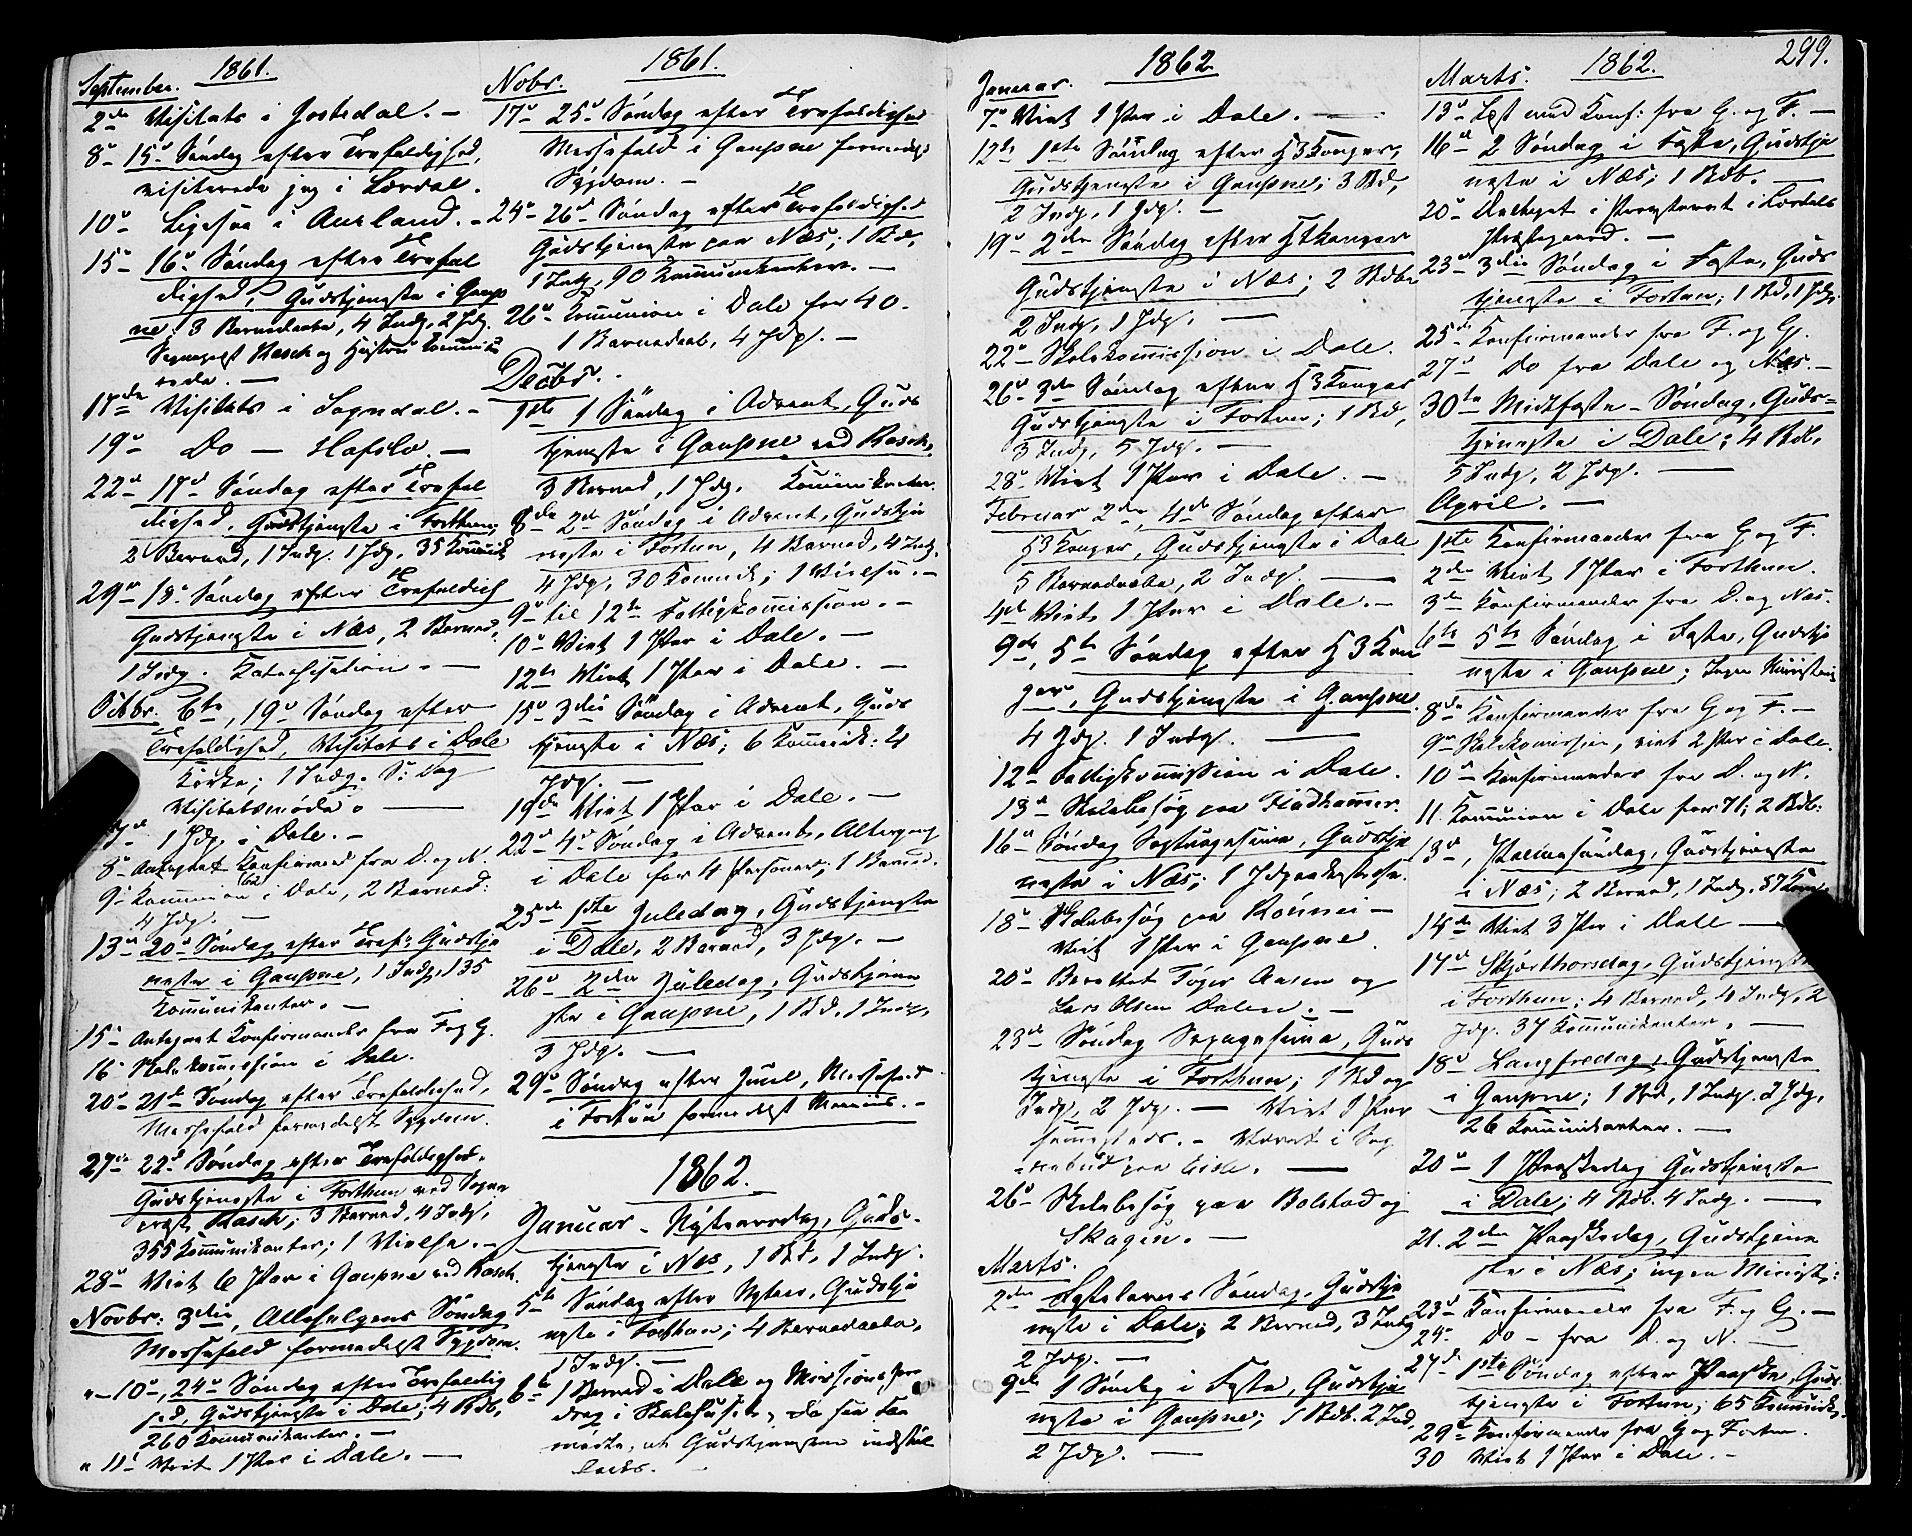 1861.
September.
2de Visitats i Jostedal. —
8de 15de Søndag efter Trefoldighed,
visiterede jeg i Lærdal.
10de Ligesaa i Aurland. —
15de 16de Søndag efter Trefol
dighed, Gudstjeneste i Gaup
ne; 3 Barnedaabe, 4 Indg. 2 Jdg.
Sognepræst Rasch og Hustru kommuni
rede. —
17de Visitats i Sogndal. —
19de Do — Hafslo. —
22de 17de Søndag efter Trefol
dighed, Gudstjeneste i Forthun;
2 Barned, 1 Indg. 1 Jdg. 35 Kommunik
29de 18de Søndag efter Trefoldigh
Gudstjeneste i Næs, 2 Barned,
1 Indg. Katechisation. —
Octbr. 6te, 19de Søndag efter
Trefoldighed, Visitats i Dale
Kirke; 1 Indg. S: Dag
Visitatsmøde. —
7de 1 Jdg. i Dale. —
8de Antegnet Konfirmand fra D. og N.
9de Kommunion (62) i Dale, 2 Barned:
4 Jdg. —
13de 20de Søndag efter Tref: Gudstje
neste i Gaupne, 1 Indg, 135
Kommunikanter. —
15de Antegnet Konfirmander fra F. og G.
16de Skolekommission i Dale.
20de 21de Søndag efter Trefoldighed,
Messefald formedelst Sygdom.
27de 22de Søndag efter Trefoldighed.
Gudstjeneste i Forthun ved Sogne
præst Rasch; 3 Barned, 4 Indg,
355 Kommunikanter; 1 Vielse. —
28de Viet 6 Par i Gaupne ved Rasch.
Novbr: 3die, Allehelgens Søndag
Messefald formedelst Sygdom.
" — 10de, 24de Søndag efter Trefoldig
hed, Gudstjeneste i Dale; 4 Bdb,
260 Kommunikanter. —
" 11de Viet 1 Par i Dale. —
1861.
Nobr.
17de 25de Søndag efter Trefoldighed
Messefald i Gaupne formedelst
Sygdom. —
24de 26de Søndag efter Trefoldighed
Gudstjeneste paa Næs; 1 Bd,
1 Indg, 90 Kommunikanter. —
26de Kommunion i Dale for 40.
1 Barnedaab, 4 Jdg. —
Decbr.
1ste 1 Søndag i Advent, Guds
tjeneste i Gaupne ved Rasch,
3 Barned, 1 Jdg. Kommunikanter.
8de 2de Søndag i Advent, Gudstje
neste i Fortun, 4 Barned, 4 Indg.
4 Jdg, 30 Kommunik; 1 Vielse. —
9de til 12te Fattigkommission. —
10de Viet 1 Par i Dale. —
12te Viet 1 Par i Dale. —
15de 3die Søndag i Advent, Guds
tjeneste i Næs; 6 Kommunik: 4
Jdg. —
19de Viet 1 Par i Dale. —
22de 4de Søndag i Advent, Altergang
i Dale for 4 Personer; 1 Barned.
25de 1ste Juledag, Gudstjeneste
i Dale, 2 Barned, 3 Jdg. —
26de 2den Juledag, Gudstjene
ste i Gaupne, 1 Bd, 1 Indg,
3 Jdg. —
29de Søndag efter Juul, Messefald
i Fortun formedelst
1862.
Januar — Nytaarsdag, Guds-
tjeneste i Næs, 1 Bd, 1 Indg.
5te Søndag efter Nytaar, Gudstje
neste i Forthun; 4 Barnedaabe,
1 Indg. —
6te 1 Barned i Dale og Missionsfore
drag i Skolehuset, da saa faa
mødte, at Gudstjenesten indstil
ledes. —
1862
Januar.
7de Viet 1 Par i Dale. —
12te 1ste Søndag efter H 3 Konger,
Gudstjeneste i Gaupne; 3 Bd,
2 Indg, 1 Jdg. —
19de 2den Søndag efter H 3 Konger
Gudstjeneste i Næs; 2 Bdb
2 Indg, 1 Jdg. —
22de Skolekommission i Dale.
26de 3die Søndag efter H 3 Konger
Gudstjeneste i Fortun; 1 Bd,
3 Indg, 5 Jdg. —
28de Viet 1 Par i Dale. —
Februar 2den, 4de Søndag efter
H 3 Konger, Gudstjeneste i Dale
5 Barnedaabe, 2 Indg. —
4de Viet 1 Par i Dale. —
9de, 5te Søndag efter H 3 Kon
ger, Gudstjeneste i Gaupne.
4 Jdg. 1 Indg. —
12te Fattigkommission i Dale.
13de Skolebesøg paa Fladhammer.
16de Søndag Septuagesima, Gudstje
neste i Næs; 1 Jdg
18de Skolebesøg paa Rønnei —
Viet 1 Par i Gaupne.
20de Berettet Tøger Aasen og
Lars Olsen Dalen. —
23de Søndag Sexagesima, Guds
tjeneste i Forthun; 1 Bd og
Indg, 2 Jdg. — Viet 1 Par
sammesteds. — Været i Sog
nebud paa Eide. —
26de Skolebesøg paa Bolstad og
Skagen. —
Marts.
2den Fastelavns Søndag, Gudstje
neste i Dale; 2 Barned, 3 Indg
2 Jdg. —
9de 1 Søndag i Faste, Gudstje
neste i Gaupne; 1 Bdb. 2 Ind,
2 Jdg. —
1862.
299.
Marts.
13de Læst med Konf: fra G. og F. —
16de 2 Søndag i Faste, Gudstje
neste i Næs; 1 Bdb. —
20de Deltaget i Præstevalg i Lærdals
Præstegaard. —
23de 3die Søndag i Faste, Guds
tjeneste i Fortun; 1 Bd, 1 Jdg,
25de Konfirmander fra F. og G.
27de Do fra Dale og Næs. —
30te Midtfaste-Søndag, Guds-
tjeneste i Dale; 4 Bdb,
5 Indg, 2 Jdg. —
April. —
1ste Konfirmander fra G. og F.
2den Viet 1 Par i Forthun.
3die Konfirmander fra D. og Næs.
6te 5te Søndag i Faste, Gudstje
neste i Gaupne; Ingen Ministering
8de Konfirmander fra G. og F. —
9de Skolekommission, viet 2 Par i Dale.
10de Konfirmander fra D. og N.
11. Kommunion i Dale for 71; 2 Bdb:
13de, Palmesøndag, Gudstjeneste
i Næs; 2 Barned, 1 Indg, 87 Kom
14de Viet 3 Par i Dale —
17de Skjærthorsdag, Gudstjeneste
i Forthun; 4 Barned, 4 Indg, 2
Jdg. 37 Kommunikanter. —
18de Langfredag, Gudstjeneste
i Gaupne; 1 Bd, 1 Indg. 2 Jdg,
26 Kommunikanter. —
20de 1 Paaskedag Gudstjeneste
i Dale; 4 Bdb. 4 Indg. —
21. 2den Paaskedag, Gudstjene
ste i Næs; ingen Ministj:
23de Konfirmander fra F. og G. —
24de Do — fra D. og N. —
27de 1ste Søndag efter Paaske, Guds
tjeneste i Fortun; 65 Kommunik.
29de Konfirmander fra G og Fortun.
30 Viet 1 Par i Dale. —